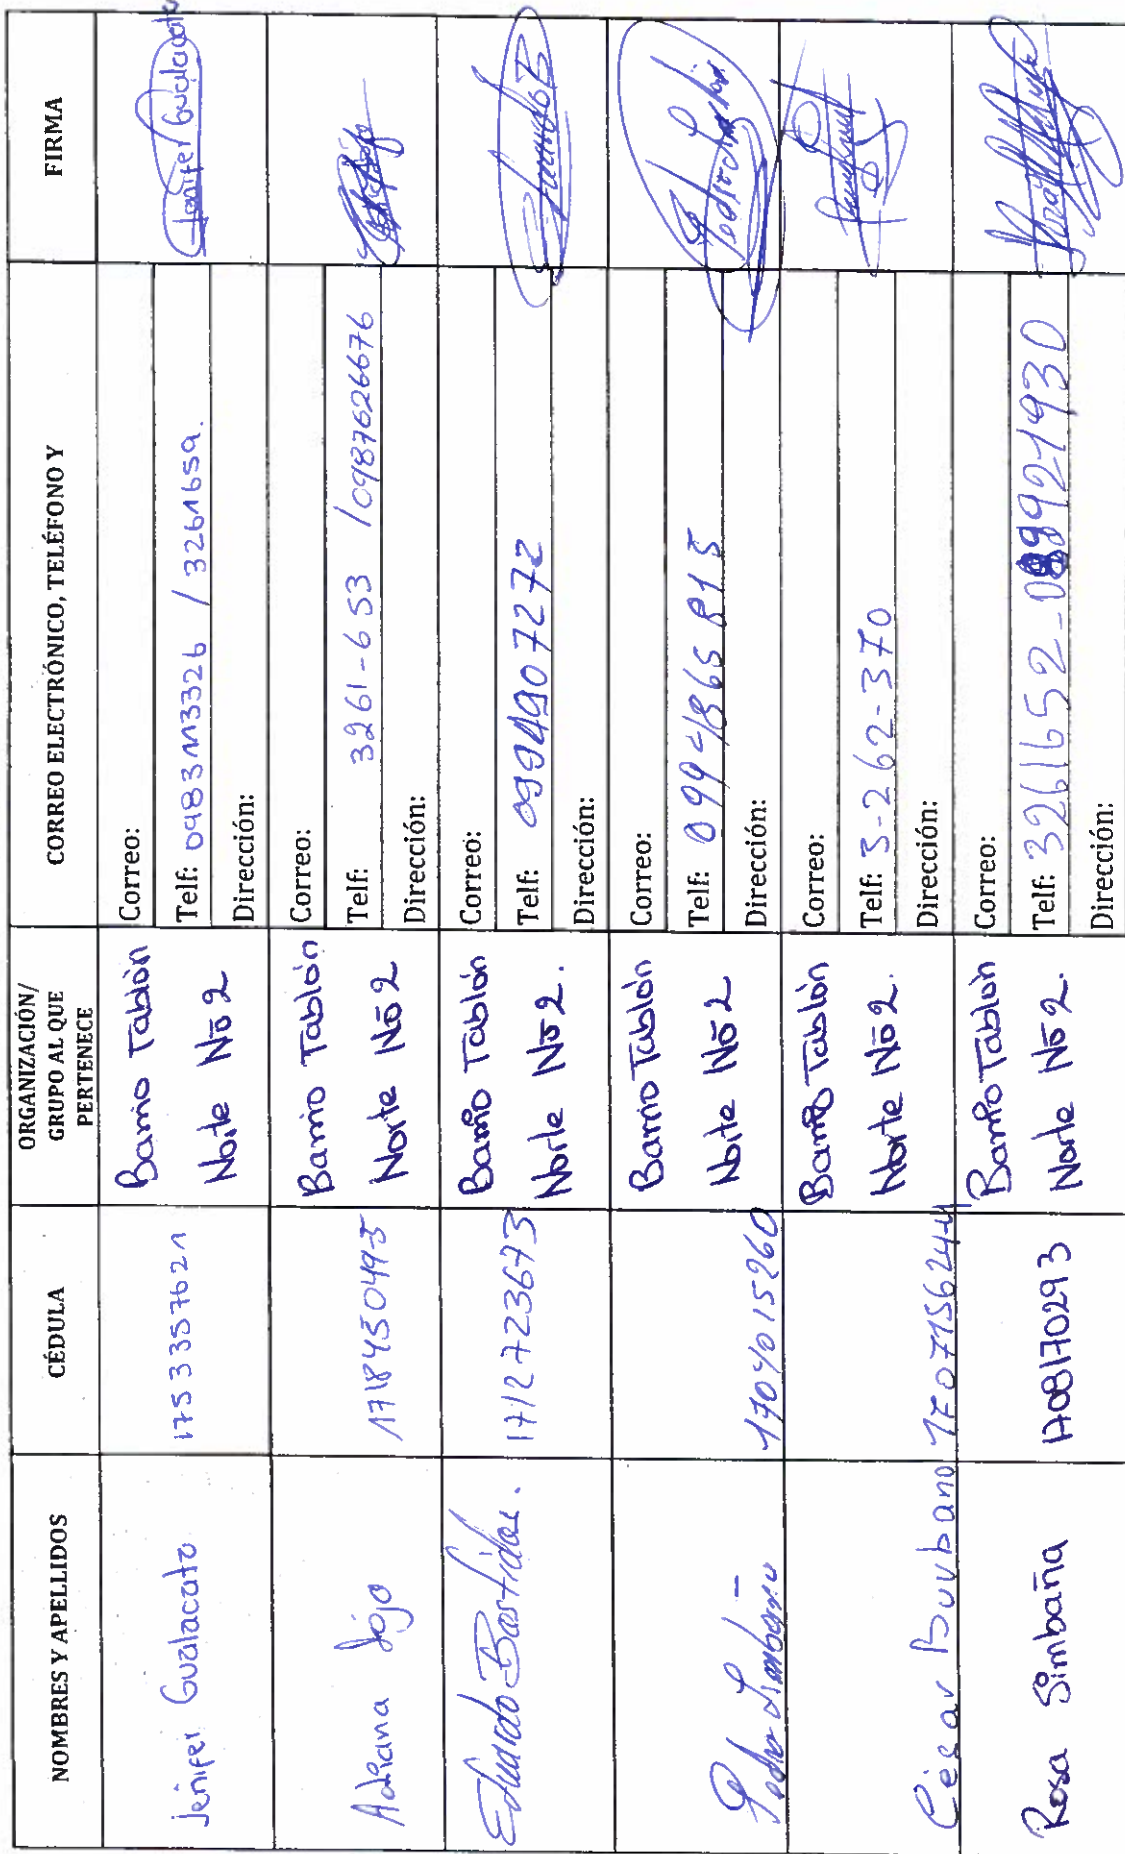 NOMBRES Y APELLIDOS
CÉDULA
ORGANIZACIÓN/
GRUPO AL QUE
PERTENECE
CORREO ELECTRÓNICO, TELÉFONO Y
FIRMA
Jenifer Gualacato
1753357621
Barrio Tablón
Norte Nō 2
Correo:
Telf: 0983113326 / 3261659.
Dirección:
Jenifer Gualacato
Adriana Jojo
1718450495
Barrio Tablón
Norte Nō 2
Correo:
Telf: 3261-653 / 0987626676
Dirección:
Eduardo Bastidas.
1712723673
Barrio Tablón
Norte Nō 2.
Correo:
Telf: 0994907272
Dirección:
Pedro Simbaña
1704015260
Barrio Tablón
Norte Nō 2
Correo:
Telf: 0994865815
Dirección:
César Burbano
1707156244
Barrio Tablón
Norte Nō 2.
Correo:
Telf: 3-262-370
Dirección:
Rosa Simbaña
1708170293
Barrio Tablón
Norte Nō 2.
Correo:
Telf: 3261652_0989921930
Dirección: